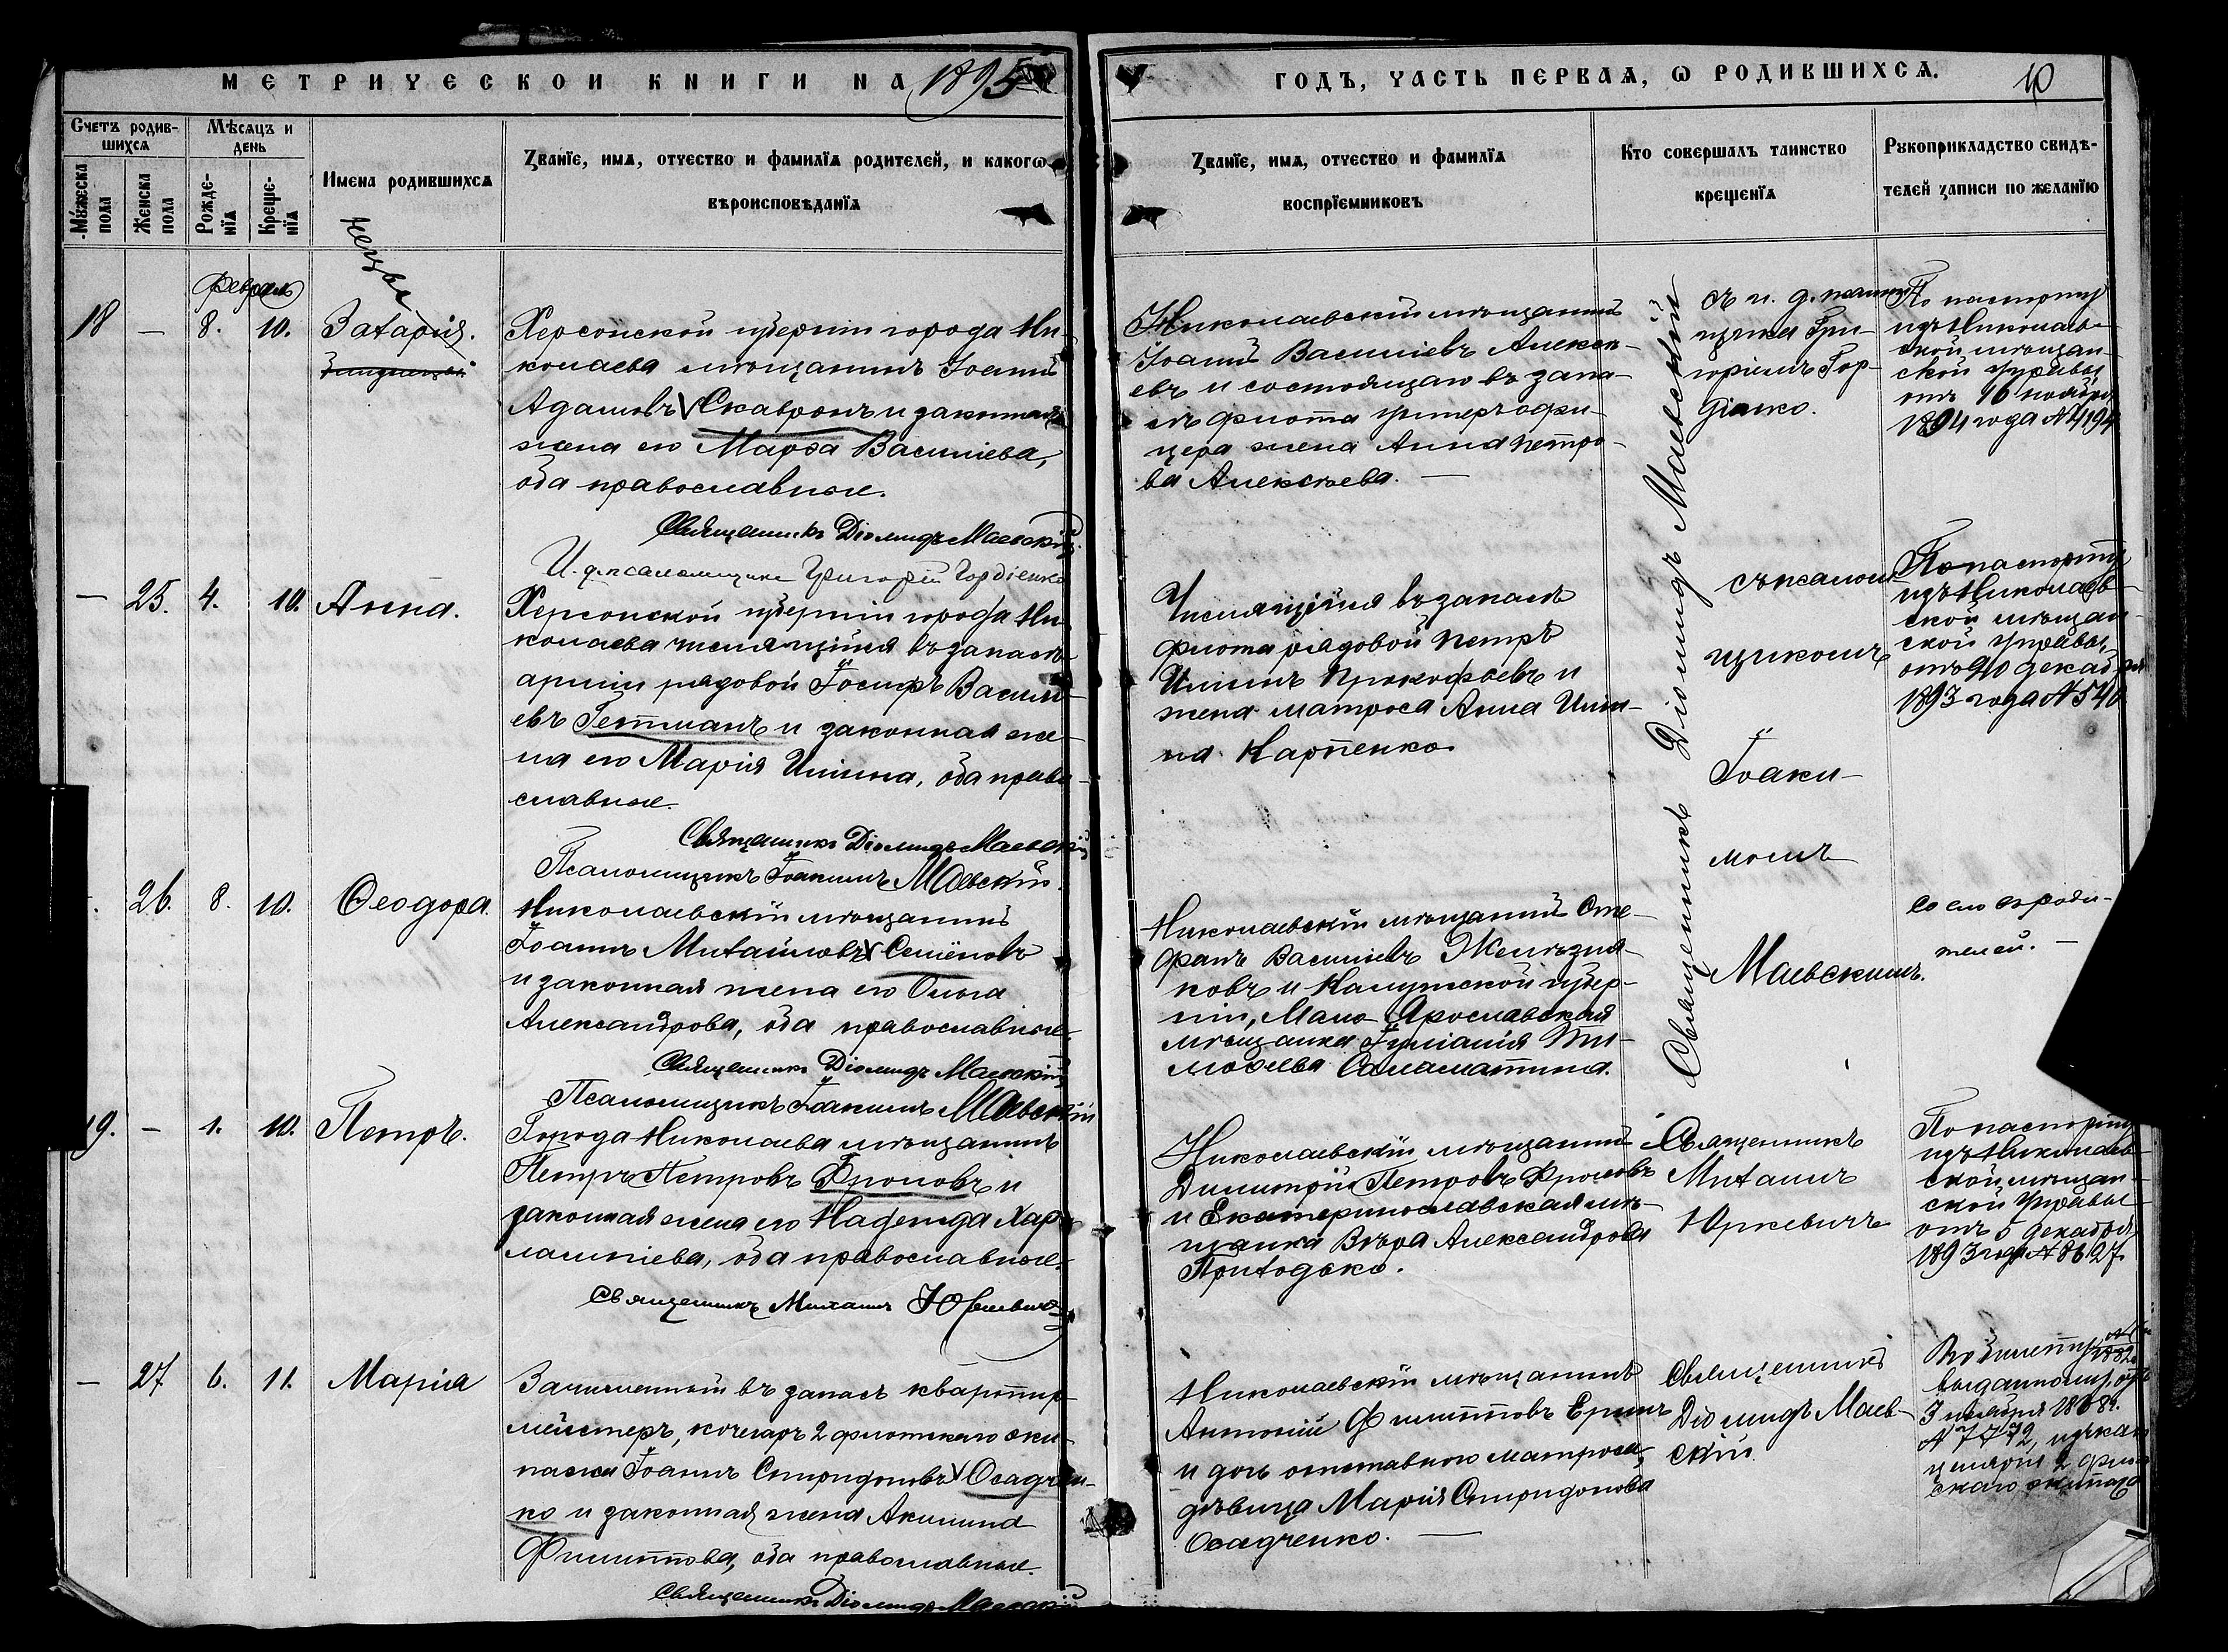 МЕТРИЧЕСКОЙ КНИГИ НА 1895
ГОДЪ, ЧАСТЬ ПЕРВАЯ, Ѡ РОДИВШИХСЯ.
10
Счетъ родив-
шихся
Мѣсяцъ и
день
Мужеска
пола
Женска
пола
Рожде-
нїя
Креще-
нїя
Имена родившихся
Званїе, имя, отчество и фамилїя родителей, и какогѡ
вѣроисповѣданїя
Званїе, имя, отчество и фамилїя
воспрїемниковъ
Кто совершалъ таинство
крещенїя
Рукоприкладство свидѣ-
телей записи по желанїю
Февраль
18
—
8.
10.
Захарія.
Херсонской губерніи города Ни-
колаева мѣщанинъ Іоаннъ
Адамовъ Скавронъ и законная
жена его Марѳа Васильева,
оба православные.
Священникъ Діомидъ Маевскій
И. д. псаломщика Григорій Гордіенко
Николаевскій мѣщанинъ
Іоаннъ Васильевъ Алексѣ-
евъ и состоящаго въ запа-
сѣ флота унтеръ офи-
цера жена Анна Петро-
ва Алексѣева. —
Священникъ Діомидъ Маевскій
съ и. д. псалом
щика Гри-
горіемъ Гор-
діенко.
По паспорту
изъ Николаев-
ской мѣщан-
ской управы
отъ 16 ноября
1894 года № 4194
—
25.
4.
10.
Анна.
Херсонской губерніи города Ни-
колаева числящійся въ запасѣ
арміи рядовой Іосифъ Василь-
евъ Гетманъ и законная же-
на его Марія Ильина, оба право-
славные.
Священникъ Діомидъ Маевскій
Псаломщикъ Іоакимъ Маевскій
Числящійся въ запасѣ
флота рядовой Петръ
Ильинъ Прокофьевъ и
жена матроса Анна Ильи-
на Карпенко
съ псалом
щикомъ
Іоаки-
момъ
Маевскимъ.
По паспорту
изъ Николаев-
ской мѣщан-
ской управы,
1893 года
26.
8.
10.
Ѳеодора.
Николаевскій мѣщанинъ
Іоаннъ Михайловъ Семёновъ
и законная жена его Ольга
Александрова, оба православные.
Священникъ Діомидъ Маевскій
Псаломщикъ Іоакимъ Маевскій
Николаевскій мѣщанинъ Сте-
фанъ Васильевъ Желѣзня-
ковъ и Калужской губер-
ніи, Мало-Ярославская
мѣщанка Іуліанія Ти-
моѳеева Саламатина.
телей. —
19.
—
1.
10.
Петръ.
Города Николаева мѣщанинъ
Петръ Петровъ Фроловъ и
законная жена его Надежда Хар-
лампіева, оба православные.
Священникъ Михаилъ Юркевичъ
Николаевскій мѣщанинъ
Димитрій Петровъ Фроловъ
и Екатеринославская мѣ-
щанка Вѣра Александрова
Приходько.
Священникъ
Михаилъ
Юркевичъ
По паспорту
изъ Николаев-
ской мѣщан-
ской управы
отъ 5 декабря
1893 года № 8627.
—
27
6.
11.
Марія
Зачисленный въ запасъ квартир-
мейстеръ, кочегаръ 2 флотскаго эки-
пажа Іоаннъ Спиридоновъ Осадчен-
ко и законная жена Акилина
Филиппова, оба православные.
Священникъ Діомидъ Маевскій
Николаевскій мѣщанинъ
Антоній Филипповъ
и дочь отставнаго матроса,
дѣвица Марія Спиридонова
Осадченко. —
Священникъ
Діомидъ Маев-
скій.
По билету
выданному отъ
№ 7772, изъ кан
целяріи 2 флот
скаго экипажа